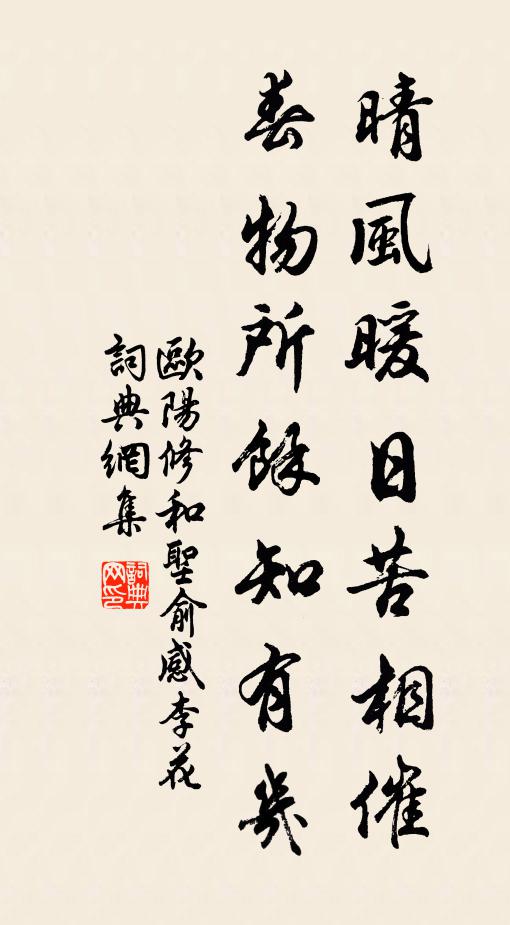 晴風暖日苦相催
春物所餘知有幾
歐陽修和聖俞感李花
詞典網集
詞典
网印